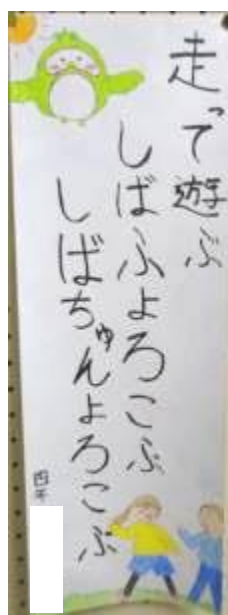 走って遊ぶ
しばふよろこぶ
しばちゅんよろこぶ
四年